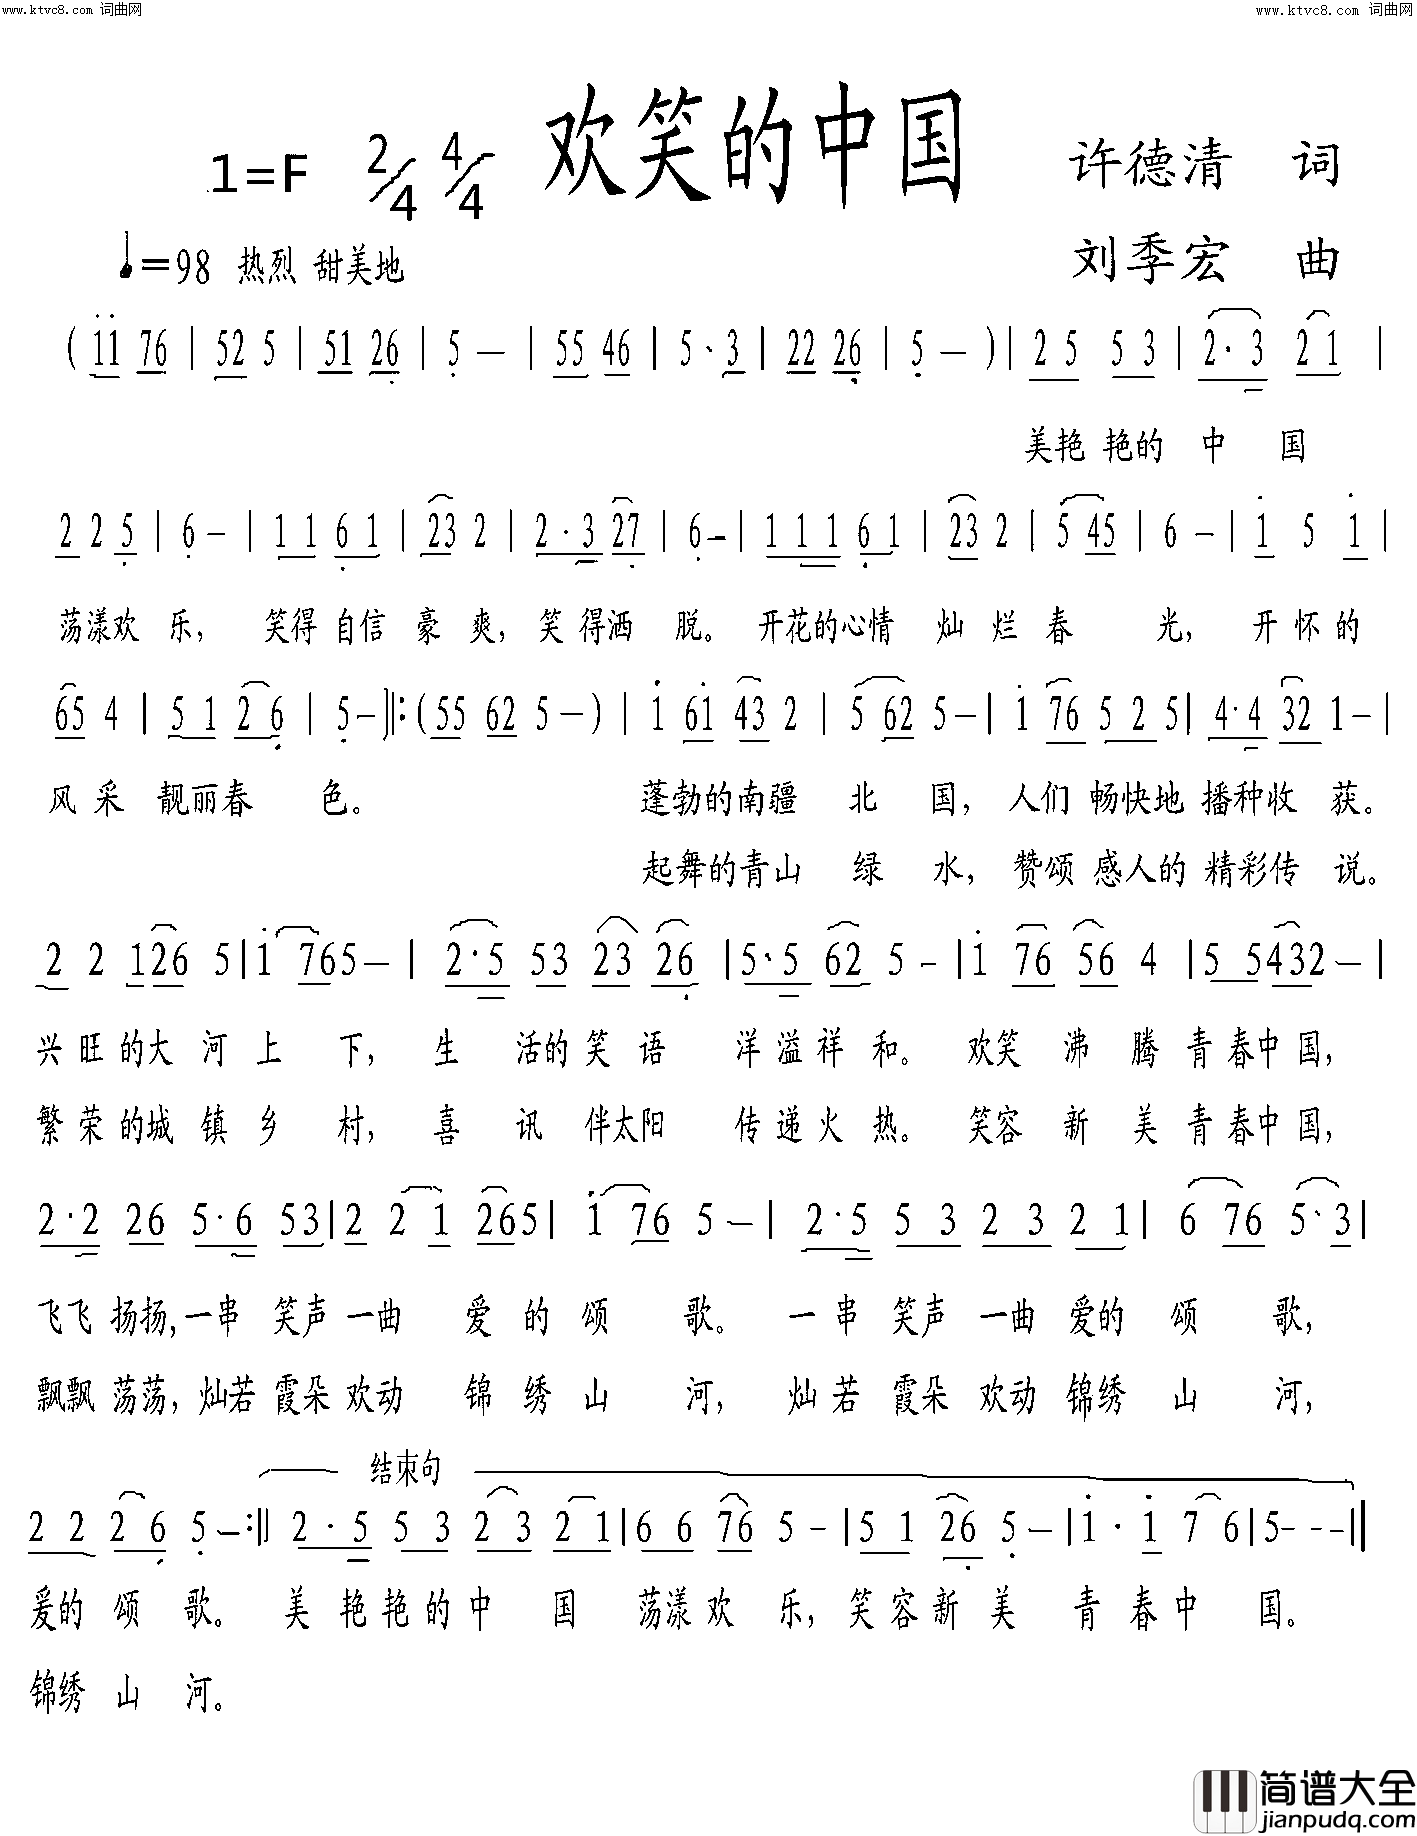 www.ktvc8.com 词曲网
www.ktvc8.com 词曲网
欢笑的中国
1=F 2/4 4/4
许德清 词
♩=98 热烈 甜美地
刘季宏 曲
( i i 7 6 | 5 2 5 | 5 1 2 6 | 5 - | 5 5 4 6 | 5 · 3 | 2 2 2 6 | 5 - ) | 2 5 5 3 | 2 · 3 2 1 |
美艳 艳的 中 国
2 2 5 | 6 - | 1 1 6 1 | 2 3 2 | 2 · 3 2 7 | 6 - | 1 1 1 6 1 | 2 3 2 | 5 4 5 | 6 - | i 5 i |
荡漾欢 乐, 笑得 自信 豪 爽, 笑 得洒 脱。 开花的心情 灿 烂 春 光, 开 怀 的
6 5 4 | 5 1 2 6 | 5 - ‖: ( 5 5 6 2 5 - ) | i 6 i 4 3 2 | 5 6 2 5 - | i 7 6 5 2 5 | 4 · 4 3 2 1 - |
风 采 靓丽春 色。 蓬勃的南疆 北 国, 人们 畅快地 播种收 获。
起舞的青山 绿 水, 赞颂 感人的 精彩传 说。
2 2 1 2 6 5 | i 7 6 5 - | 2 · 5 5 3 2 3 2 6 | 5 · 5 6 2 5 - | i 7 6 5 6 4 | 5 5 4 3 2 - |
兴 旺 的大 河 上 下, 生 活的 笑 语 洋 溢 祥 和。 欢笑 沸 腾 青 春中国,
繁 荣 的城 镇 乡 村, 喜 讯 伴太阳 传 递 火 热。 笑容 新 美 青 春中国,
2 · 2 2 6 5 · 6 5 3 | 2 2 1 2 6 5 | i 7 6 5 - | 2 · 5 5 3 2 3 2 1 | 6 7 6 5 · 3 |
飞飞 扬扬,一串 笑声 一曲 爱 的 颂 歌。 一 串 笑声 一曲 爱的 颂 歌,
飘飘 荡荡, 灿若 霞朵 欢动 锦 绣 山 河, 灿 若 霞朵 欢动 锦绣 山 河,
结束句
2 2 2 6 5 - :‖ 2 · 5 5 3 2 3 2 1 | 6 6 7 6 5 - | 5 1 2 6 5 - | i · i 7 6 | 5 - - - ‖
爱的 颂 歌。 美 艳 艳 的 中 国 荡漾 欢 乐, 笑 容 新 美 青 春 中 国。
锦绣 山 河。
简谱大全
jianpudq.com